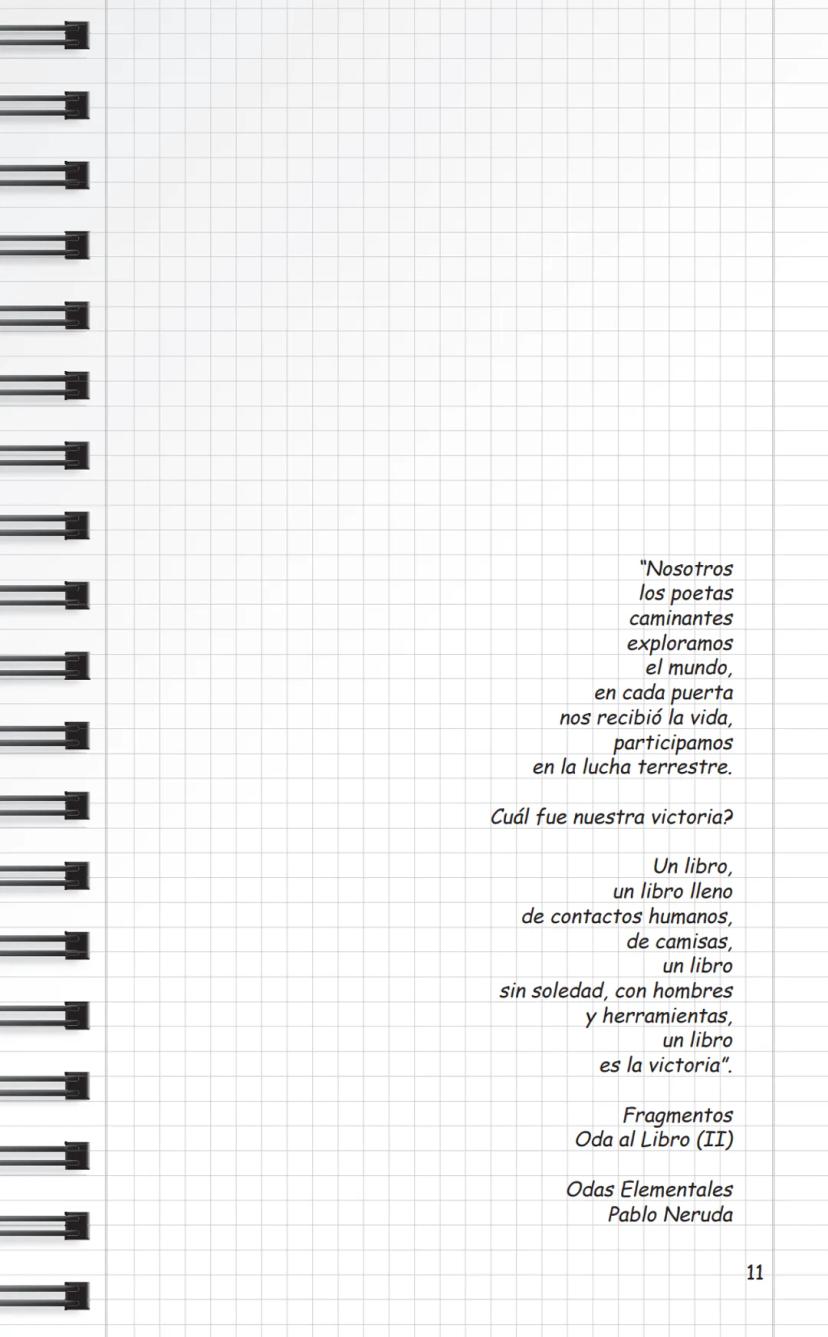 “Nosotros
los poetas
caminantes
exploramos
el mundo,
en cada puerta
nos recibió la vida,
participamos
en la lucha terrestre.
Cuál fue nuestra victoria?
Un libro,
un libro lleno
de contactos humanos,
de camisas,
un libro
sin soledad, con hombres
y herramientas,
un libro
es la victoria”.
Fragmentos
Oda al Libro (II)
Odas Elementales
Pablo Neruda
11